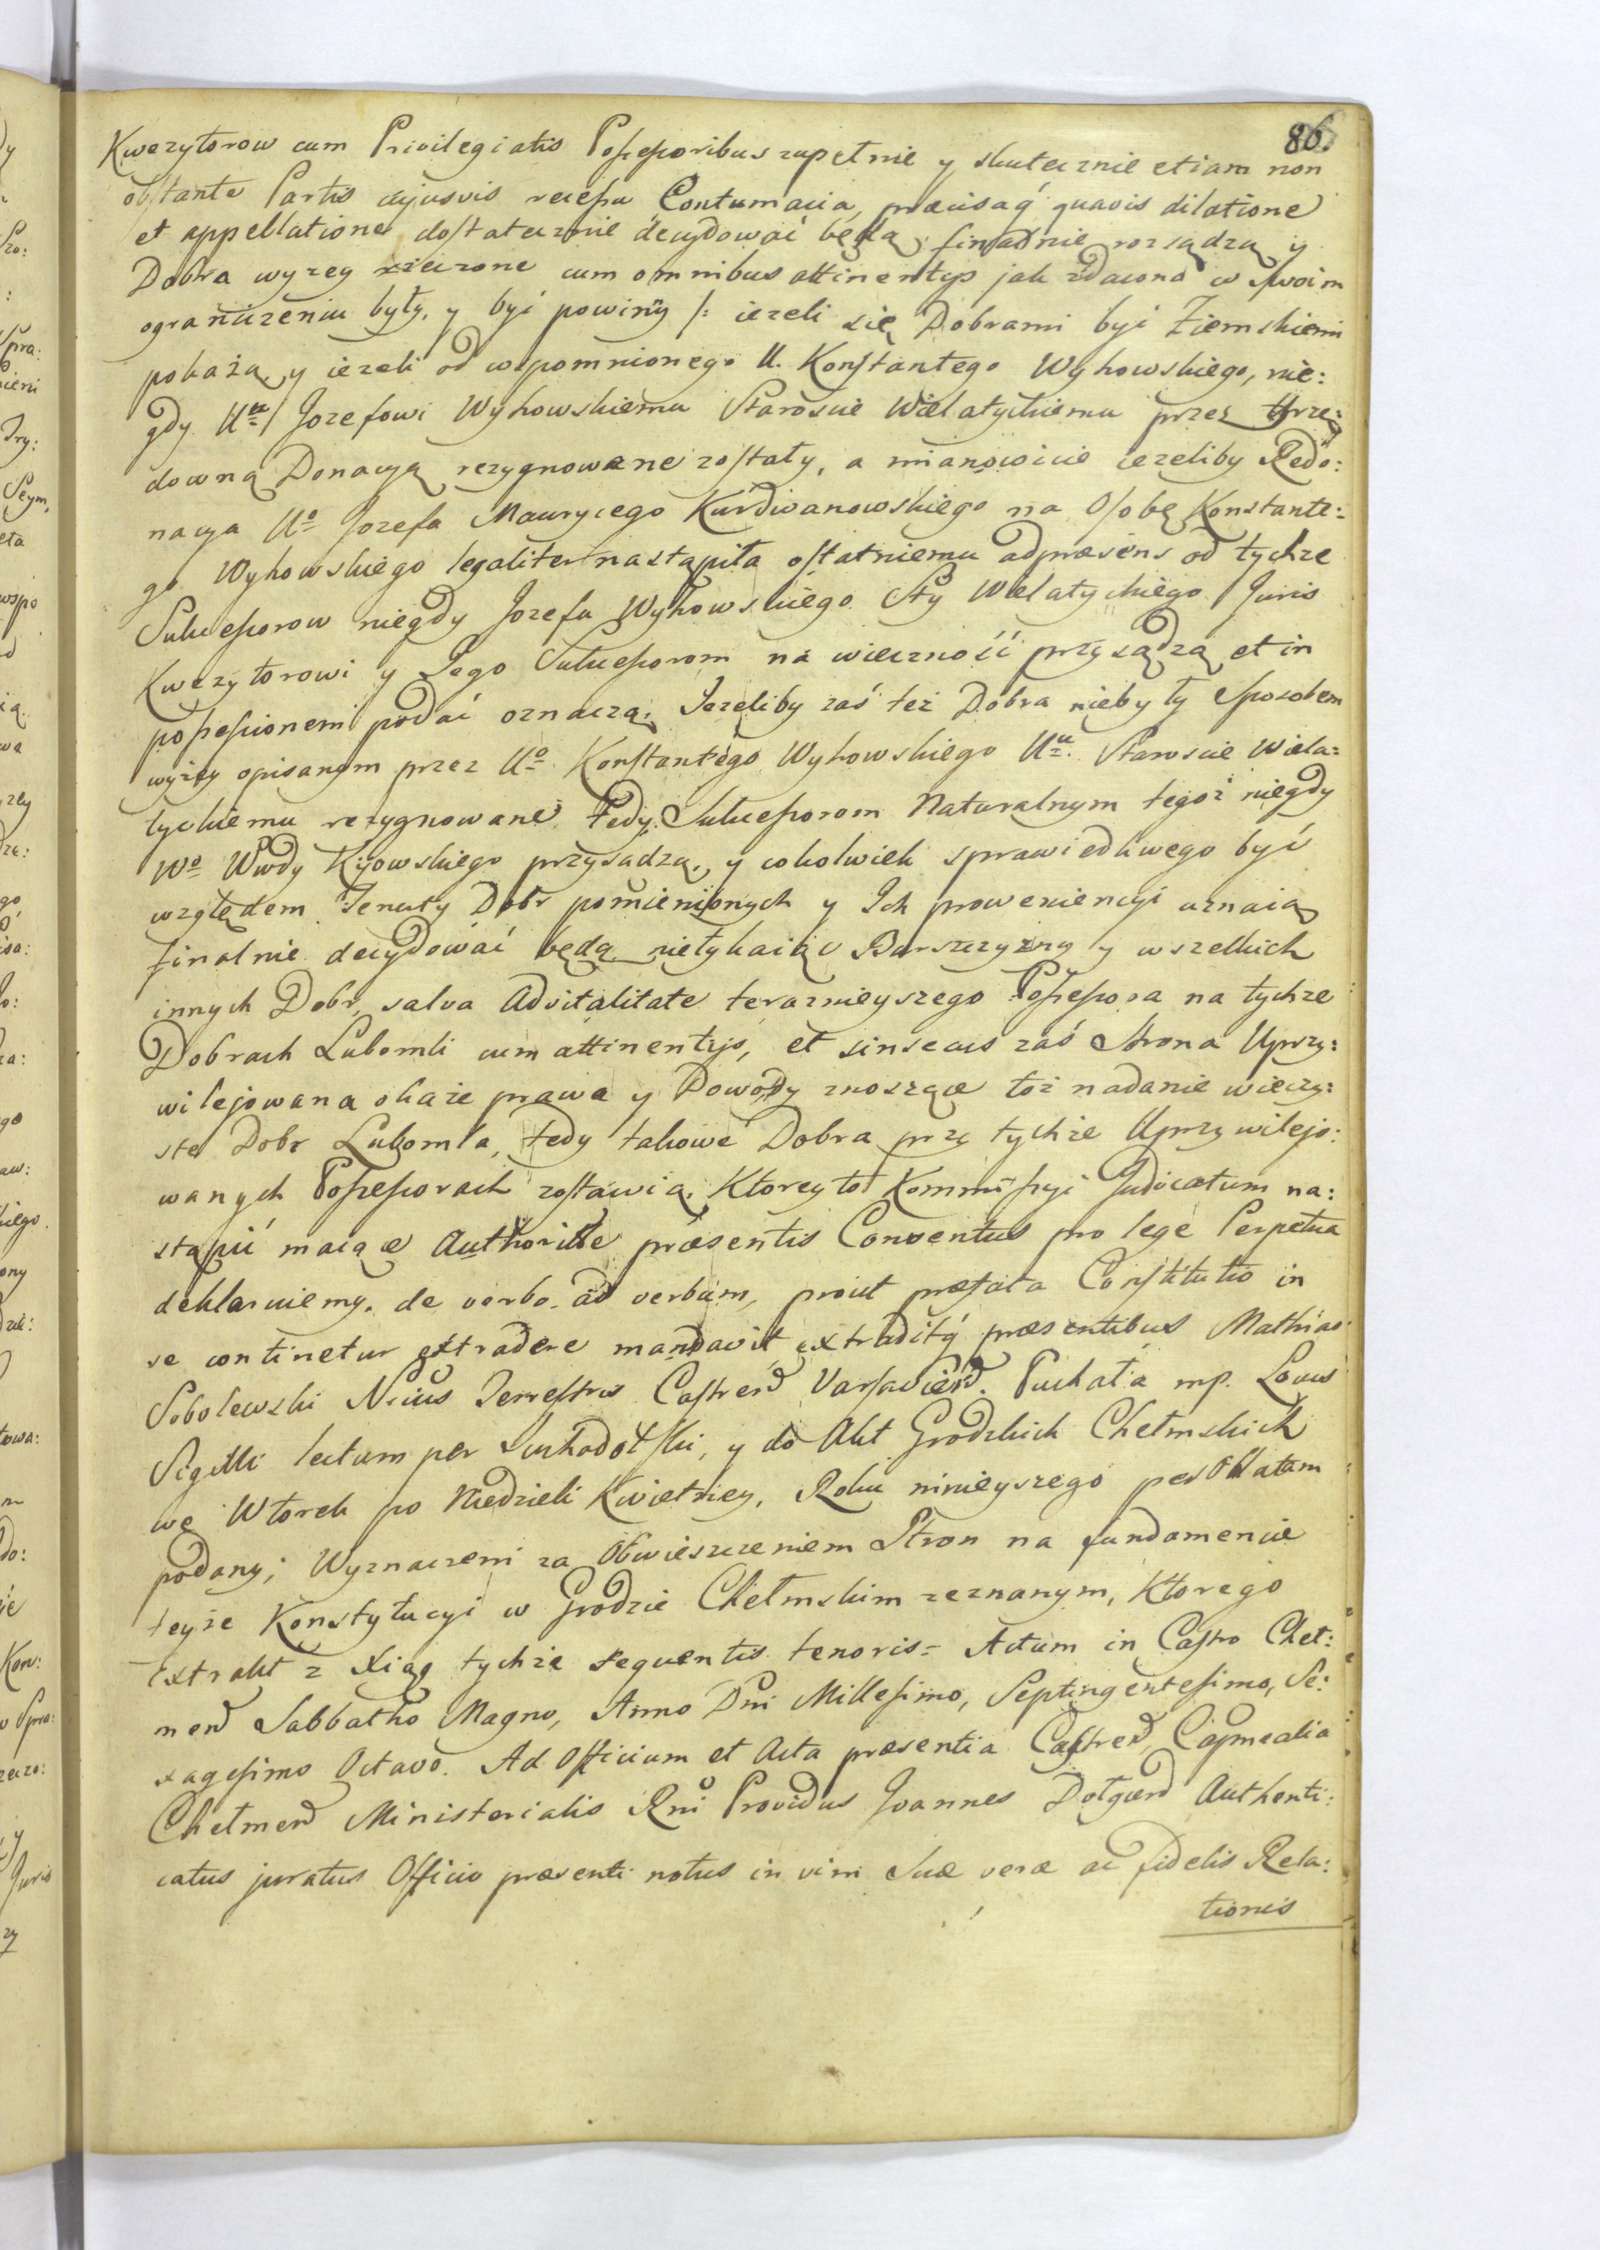 86.
Kwezytorow cum Privilegiatis Possessoribus zupełnie y skutecznie etiam non
obstante Partis cujusvis recessu Contumacia, præcisaq́ quavis dilatione
et appellatione dostatecznie decydować będą, finalnie rozsądzą y
Dobra wyżey rzeczone cum omnibus attinentys jak zdawna w swoim
ograniczeniu były, y być powinny /: ieżeli się Dobrami być Ziemskiemi
pokażą y ieżeli od wspomnionego U. Konstantego Wyhowskiego, nie:
gdy U<sup>mu</sup> Jozefowi Wyhowskiemu Staroscie Wielatyckiemu przez Urzę:
downą Donacyą rezygnowane zostały, a mianowicie ieżeliby Redo:
nacya U<sup>o</sup> Jozefa Maurycego Kurdwanowskiego na Osobę Konstante:
go Wyhowskiego legaliter nastąpiła ostatniemu adpræsens od tychże
Sukcessorow niegdy Jozefa Wyhowskiego Sty Wielatyckiego Juris
Kwezytorowi y Jego Sukcessorom na wieczność przysądzą et in
possessionem podać oznaczą; Jeżeliby zaś też Dobra nie były sposobem
wyżey opisanym przez U<sup>o</sup> Konstantego Wyhowskiego U<sup>u</sup>. Staroscie Wiela:
tyckiemu rezygnowane Tedy Sukcessorom Naturalnym tegoż niegdy
W<sup>o</sup> Wwdy Kijowskiego przysądzą, y cokolwiek sprawiedliwego być
względem Tenuty Dobr pomienionych y Ich proweniencyi uznaią
finalnie decydować będą nietykaiąc Barszczyzny y wszelkich
innych Dobr, salva Advitalitate teraznieyszego Possessora na tychże
Dobrach Lubomli cum attinentijs, et sinsecus zaś Strona Uprzy:
wilejowana okaże prawa y Dowody znoszące toż nadanie wieczy:
ste Dobr Lubomla, tedy takowe Dobra przy tychże Uprzywilejo:
wanych Possessorach zostawią. Ktoreyto Kommissyi Judicatum na:
stąpić maiące Authoritte præsentis Conventus pro lege Perpetua
deklaruiemy. de verbo ad verbum, prout præfata Constitutio in
se continetur extradere mandavit extraditq́ præsentibus Mathias
Sobolewski Nrius Terrestris Castren Varsavien. Puchała mp. Locus
Sigilli lectum per Suchodolski, y do Akt Grodzkich Chełmskich
we Wtorek po Niedzieli Kwietniey, Roku ninieyszego per Oblatam
podany; Wyznaczeni za Obwieszczeniem Stron na fundamencie
teyże Konstytucyi w Grodzie Chełmskim zeznanym, Ktorego
Extrakt z Xiąg tychże sequentis tenoris = Actum in Castro Cheł:
men Sabbatho Magno, Anno Dni Millesimo, Septingentesimo, Se:
xagesimo Octavo. Ad Officium et Acta præsentia Castren, Capnealia
Chełmen Ministerialis Rni Providus Joannes Authenti:
catus juratus Officio præsenti notus in vim suæ veræ ac fidelis Rela:
tionis